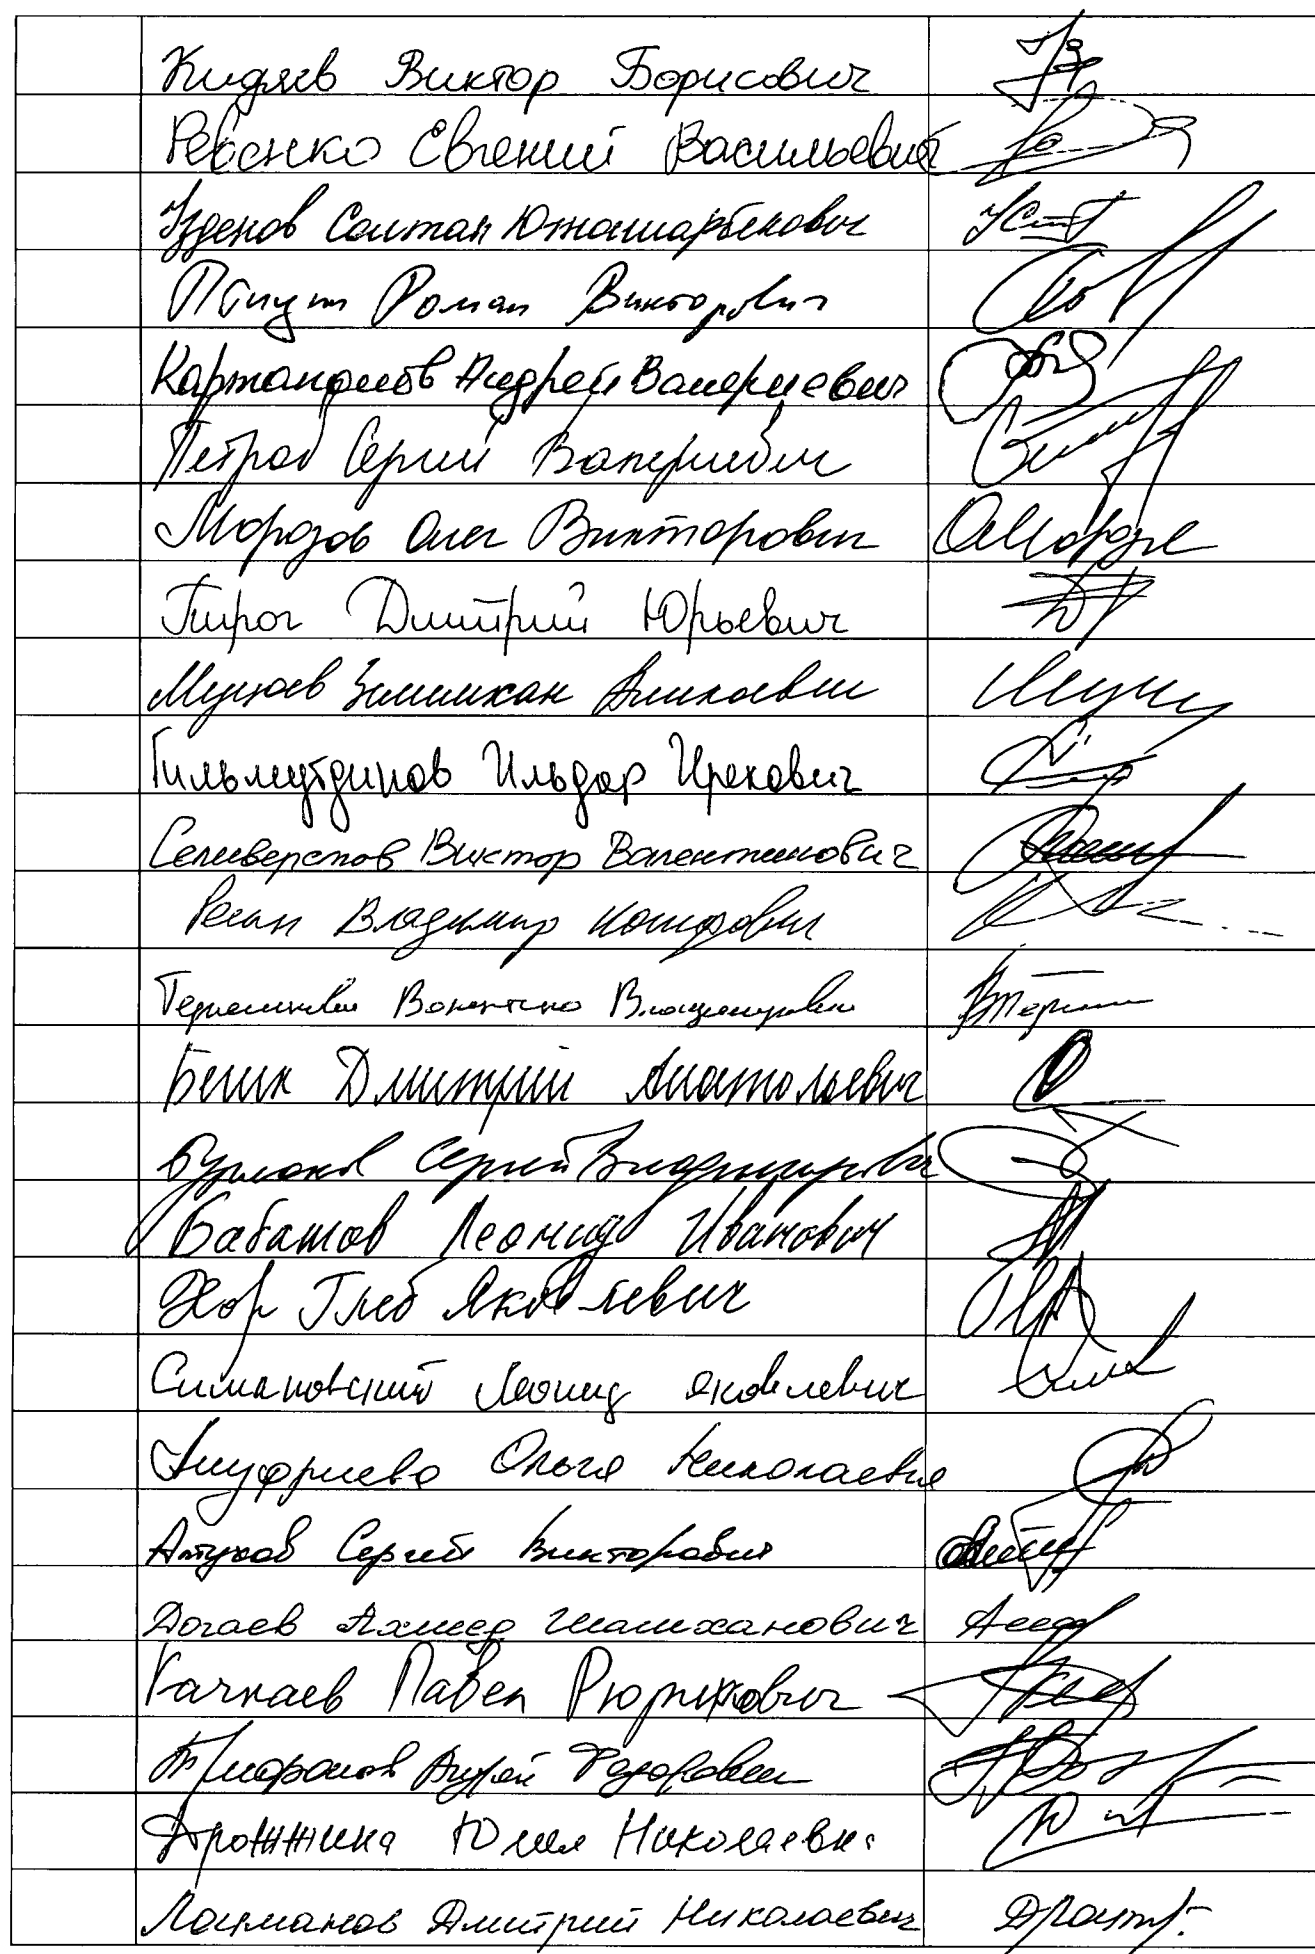 Кидяев Виктор Борисович
Ревенко Евгений Васильевич
Узденов Солтан
Роман Викторович
Картаполов Андрей Валериевич
Петров Сергей Валериевич
Морозов Олег Викторович
Пирог Дмитрий Юрьевич
Муцоев Зелимхан Аликоевич
Гильмутдинов Ильдар Ирекович
Селиверстов Виктор Валентинович
Ресин Владимир Иосифович
Терешкова Валентина Владимировна
Белик Дмитрий Анатольевич
Бурлаков Сергей Владимирович
Бабашов Леонид Иванович
Хор Глеб Яковлевич
Симановский Леонид Яковлевич
Ануфриева Ольга Николаевна
Алтухов Сергей Викторович
Догаев Ахмед Шамханович
Качкаев Павел Рюрикович
Андрей Федорович
Дрожжина Юлия Николаевна
Лоцманов Дмитрий Николаевич